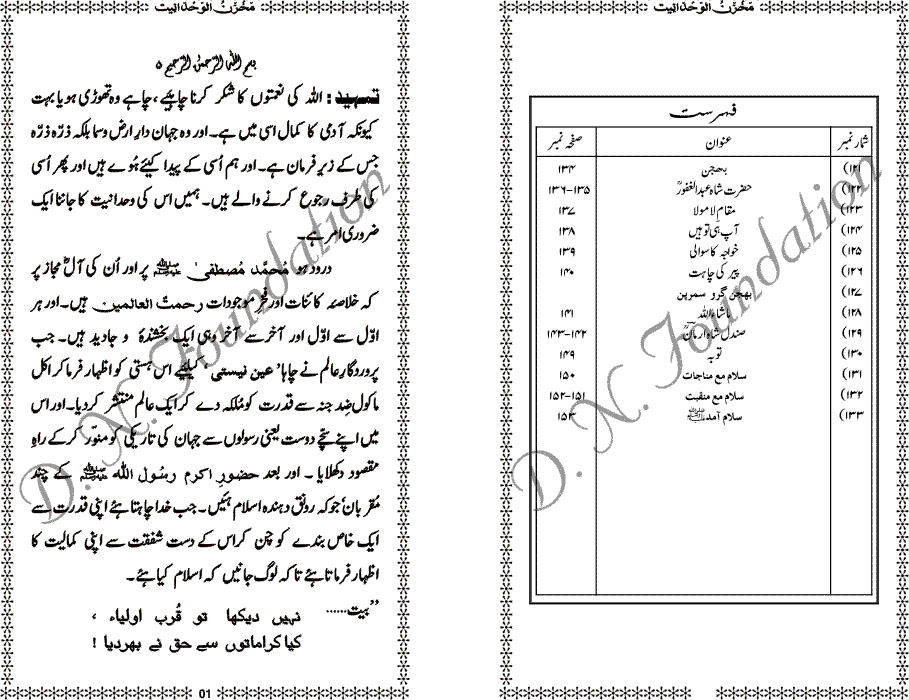 مخزنُ الوحدانیت
فہرست
شمار نمبر	عنوان	صفحہ نمبر
۱۲۱)	بھجن	۱۳۴
۱۲۲)	حضرت شاہ عبدالغفورؒ	۱۳۵-۱۳۶
۱۲۳)	مقامِ لامولا	۱۳۷
۱۲۴)	آپ ہی تو ہیں	۱۳۸
۱۲۵)	خواجہ کا سوالی	۱۳۹
۱۲۶)	پیر کی چاہت	۱۴۰
۱۲۷)	بھجن گرو سمرین
۱۲۸)	ماشاءاللہ	۱۴۱
۱۲۹)	صندل شاہ ارمانؒ	۱۴۲-۱۴۳
۱۳۰)	توبہ	۱۴۹
۱۳۱)	سلام مع مناجات	۱۵۰
۱۳۲)	سلام مع منقبت	۱۵۱-۱۵۲
۱۳۳)	سلام آمدﷺ	۱۵۳
D. N. Foundation
مخزنُ الوحدانیت
بسم اللہ الرحمٰن الرحیم ۵
تمہید : اللہ کی نعمتوں کا شکر کرنا چاہئیے ، چاہے وہ تھوڑی ہو یا بہت
کیونکہ آدمی کا کمال اسی میں ہے۔ اور وہ جہان دارِ ارض و سما بلکہ ذرّہ ذرّہ
جس کے زیرِ فرمان ہے۔ اور ہم اُسی کے پیدا کیئے ہُوے ہیں اور پھر اُسی
کی طرف رجوع کرنے والے ہیں۔ ہمیں اس کی وحدانیت کا جاننا ایک
ضروری امر ہے۔
درود ہو مُحمّد مُصطفیٰ ﷺ پر اور اُن کی آلؑ مجاز پر
کہ خلاصہ کائنات اور فخرِ موجودات رحمت العالمین ہیں۔ اور ہر
اوّل سے اوّل اور آخر سے آخر وہی ایک بخشندہ و جاوید ہیں۔ جب
پروردگارِ عالم نے چاہا ’عین نیستی‘ کیلئیے اس ہستی کو اظہار فرما کر اکل
ماکول ضِد جنہ سے قدرت کو مُلکہ دے کر ایک عالم منتشر کر دیا۔ اور اس
میں اپنے سچّے دوست یعنی رسولوں سے جہان کی تاریکی کو منوّر کرکے راہِ
مقصود دکھلایا ۔ اور بعد حضورِ اکرم رسُول اللہ ﷺ کے چند
مُقربان جو کہ رونق دہندہ اسلام ہئیں۔ جب خدا چاہتا ہئے اپنی قدرت سے
ایک خاص بندے کو چُن کر اس کے دستِ شفقت سے اپنی کمالیت کا
اظہار فرماتا ہئے تا کہ لوگ جانیں کہ اسلام کیا ہئے۔
”بیت...... نہیں دیکھا تو قُربِ اولیاء ،
کیا کراماتوں سے حق نے بھر دیا !
01
D. N. Foundation